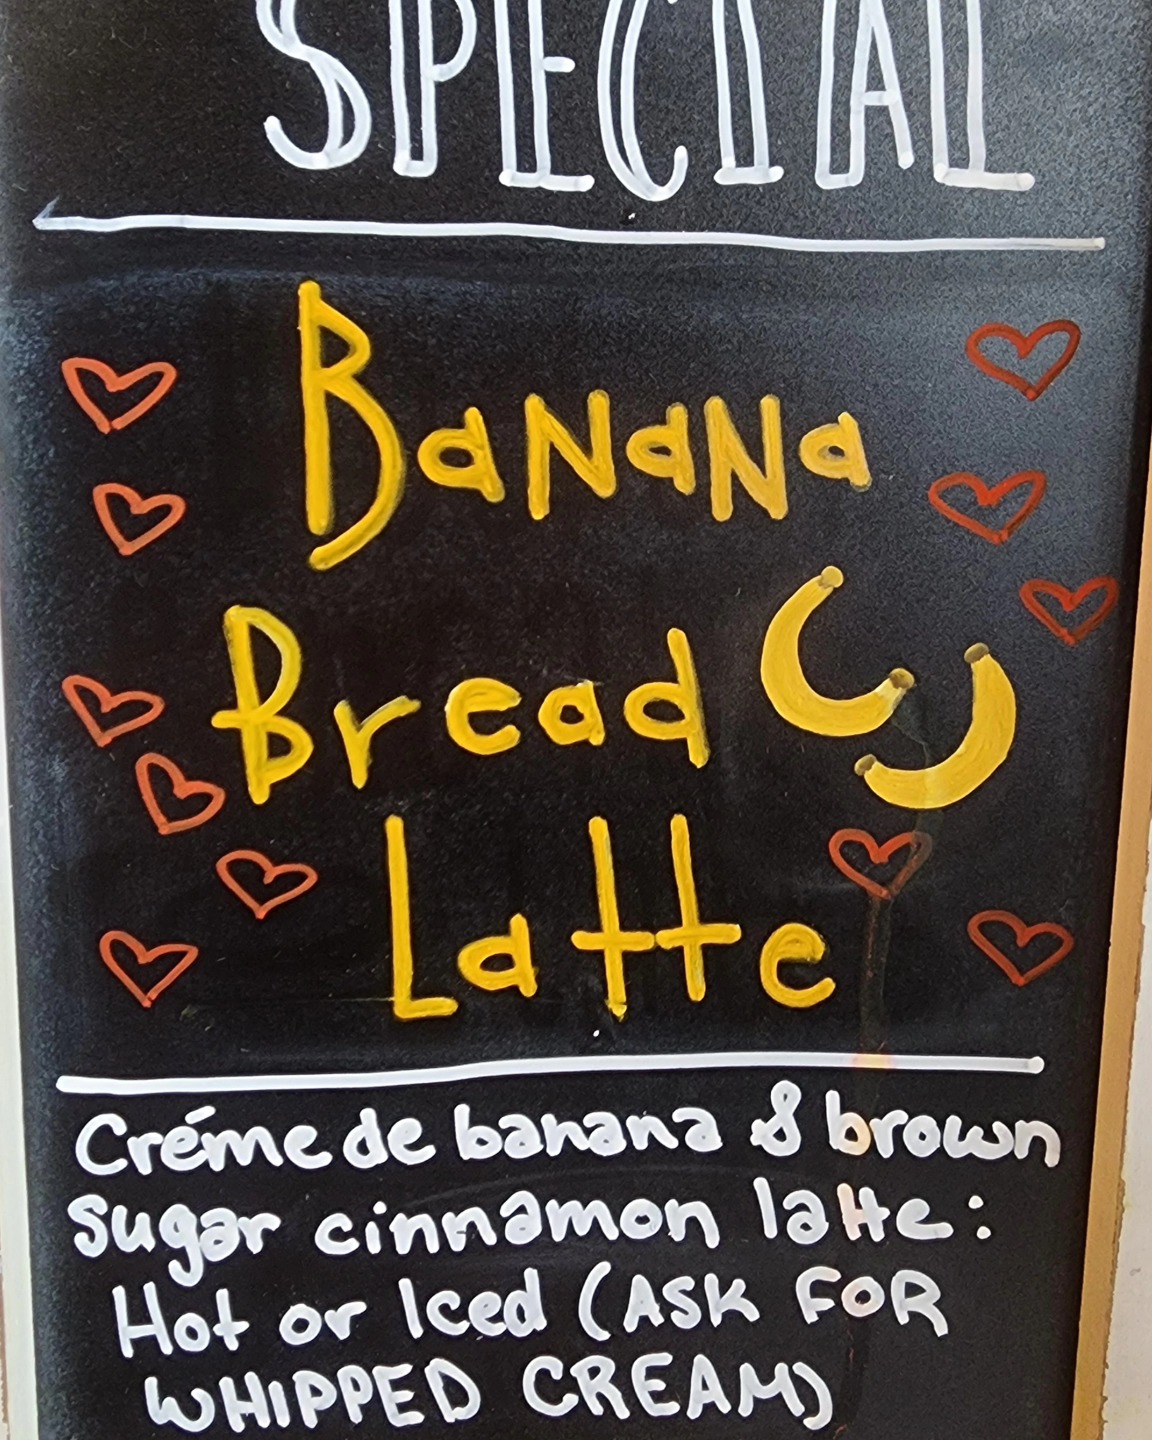 SPECIAL
BaNaNa
Bread
Latte
Créme de banana & brown
sugar cinnamon latte:
Hot or Iced (ASK FOR
WHIPPED CREAM)